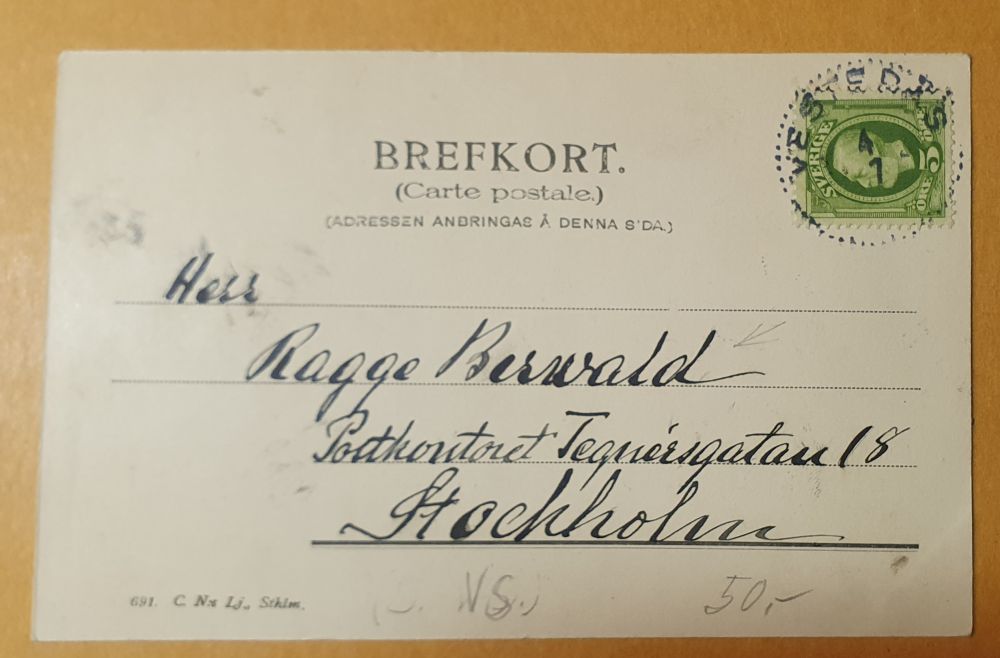 BREFKORT.
(Carte postale.)
(ADRESSEN ANBRINGAS Å DENNA S'DA.)
VESTERÅS
4
7
SVERIGE
5
ÖRE
Herr
Ragge Berwald
Postkontoret Tegnérsgatan 18
Stockholm
691. C. N:s Lj., Sthlm.
50,-